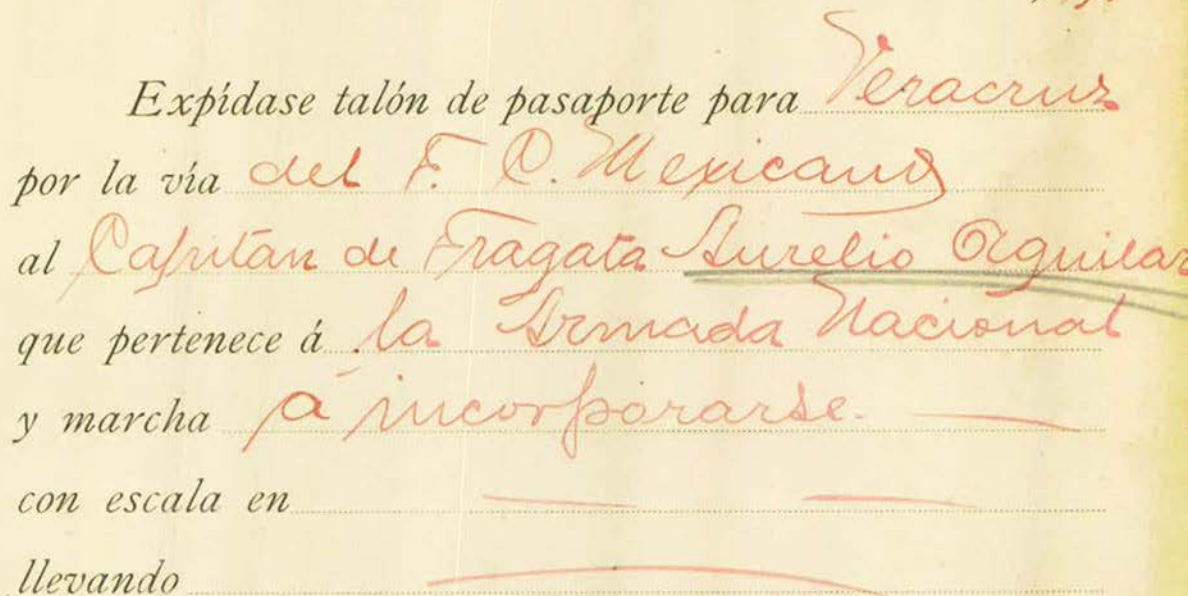 Expídase talón de pasaporte para Veracruz
por la vía del F. C. Mexicano
al Capitán de Fragata Aurelio Aguilar
que pertenece á la Armada Nacional
y marcha á incorporarse.
con escala en
llevando